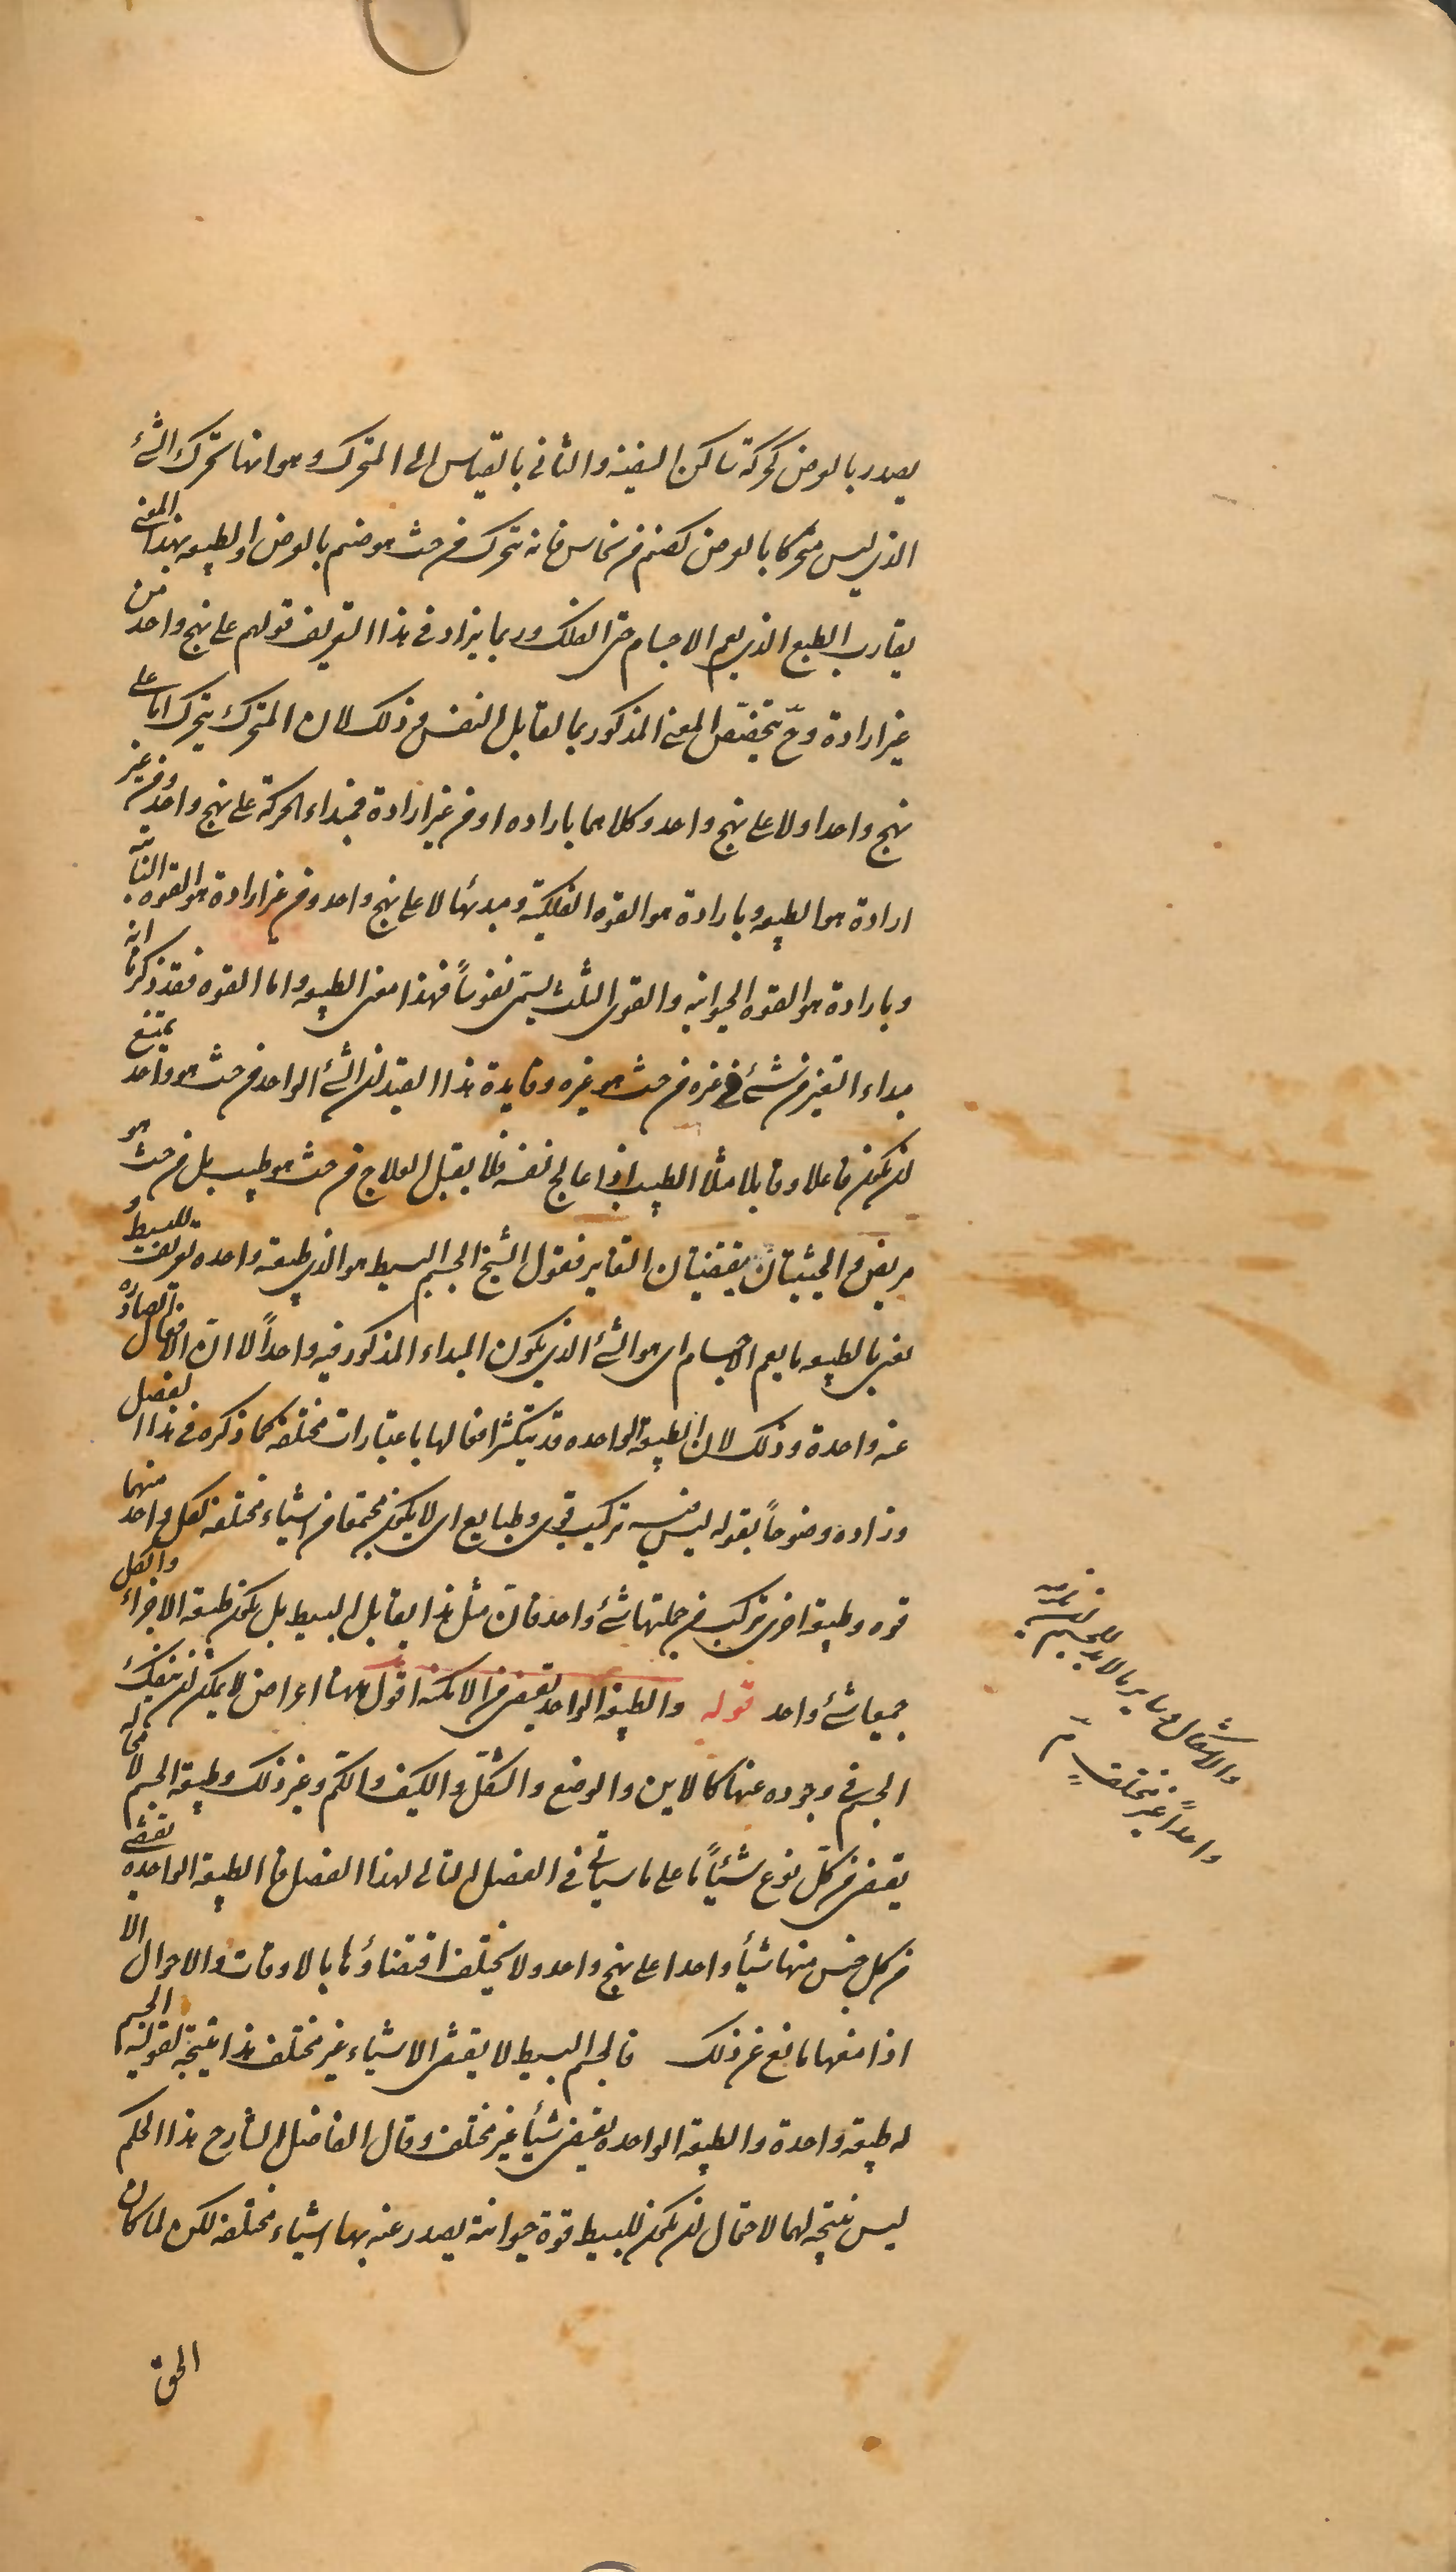 يصدر بالعرض كحركة ساكن السفينة والثاني بالقياس الى المتحرك وهو انها تحرك الشئ
الذي ليس متحركا بالعرض كصنم من نحاس فانه يتحرك من حيث هو صنم بالعرض والطبيعه بهذا المعنى
يقارب الطبع الذي يعم الاجسام حتى الفلك وربما يزاد في هذا التعريف قولهم على نهج واحد من
غير ارادة وحّ يتخصّص المعنى المذكور بما يقابل النفس وذلك لان المتحرك يتحرك اما على
نهج واحد اولا على نهج واحد وكلاهما باراده او من غير ارادة فمبداء الحركة على نهج واحد ومن غير
ارادة هو الطبيعه وبارادة هو القوه الفلكية ومبدئها لا على نهج واحد ومن غير ارادة هو القوه النباتيه
وبارادة هو القوه الحيوانيه والقوى الثلث يسمى نفوساً فهذا معنى الطبيعه واما القوه فقد ذكرنا انه
مبداء التغير من شئ في غيره من حيث هو غيره وفايدة هذا القيد لان الشئ الواحد من حيث هو واحد يمتنع
لان يكون فاعلا وقابلا مثلا الطبيب اذا عالج نفسه فلا يقبل العلاج من حيث هو طبيب بل من حيث هو
مريض والحيثيتان يقتضيان التغاير فقول الشيخ الجسم البسيط هو الذي طبيعته واحده تعريف للبسيط و
يعني بالطبيعه ما يعم الاجسام اى هو الشئ الذي يكون المبداء المذكور فيه واحداً لا ان الافعال الصادره
عنه واحدة وذلك لان الطبيعه الواحده قد يتكثر افعالها باعتبارات مختلفه كما ذكره في هذا الفصل
وزاده وضوحاً بقوله ليس فيه تركيب قوى وطبايع اى لا يكون مجتمعا من اشياء مختلفه لكل واحد منهما
قوه وطبيعة اخرى يتركب من جملتها شئ واحد فان مثل هذا يقابل البسيط بل يكون طبيعه الاجزاء والكل
جميعا شئ واحد قوله والطبيعه الواحده يقتضى من الامكنه اقول ههنا اعراض لا يمكن ان ينفك
الجسم في وجوده عنها كالاين والوضع والشكل والكيف والكم وغير ذلك وطبيعه الجسم لا محاله
يقتضى من كل نوع شيئاً ما على ما سياتى في الفصل التالى لهذا الفصل فان الطبيعه الواحده يقتضى
من كل جنس منها شيأ واحدا على نهج واحد ولا يختلف اقتضاؤها بالاوقات والاحوال الا
اذا منعها مانع عن ذلك فالجسم البسيط لا يقتضى الا شياء غير مختلف هذا نتيجة لقوله الجسم
له طبيعة واحدة والطبيعه الواحده يقتضى شيأ غير مختلف وقال الفاضل الشارح هذا الحكم
ليس نتيجة لهما لاحتمال ان يكون للبسيط قوة حيوانية يصدر عنه بها اشياء مختلفه لكن لما كان
الحق
والاشكال وساير ما لا بد للجسم
واحداً غير مختلف